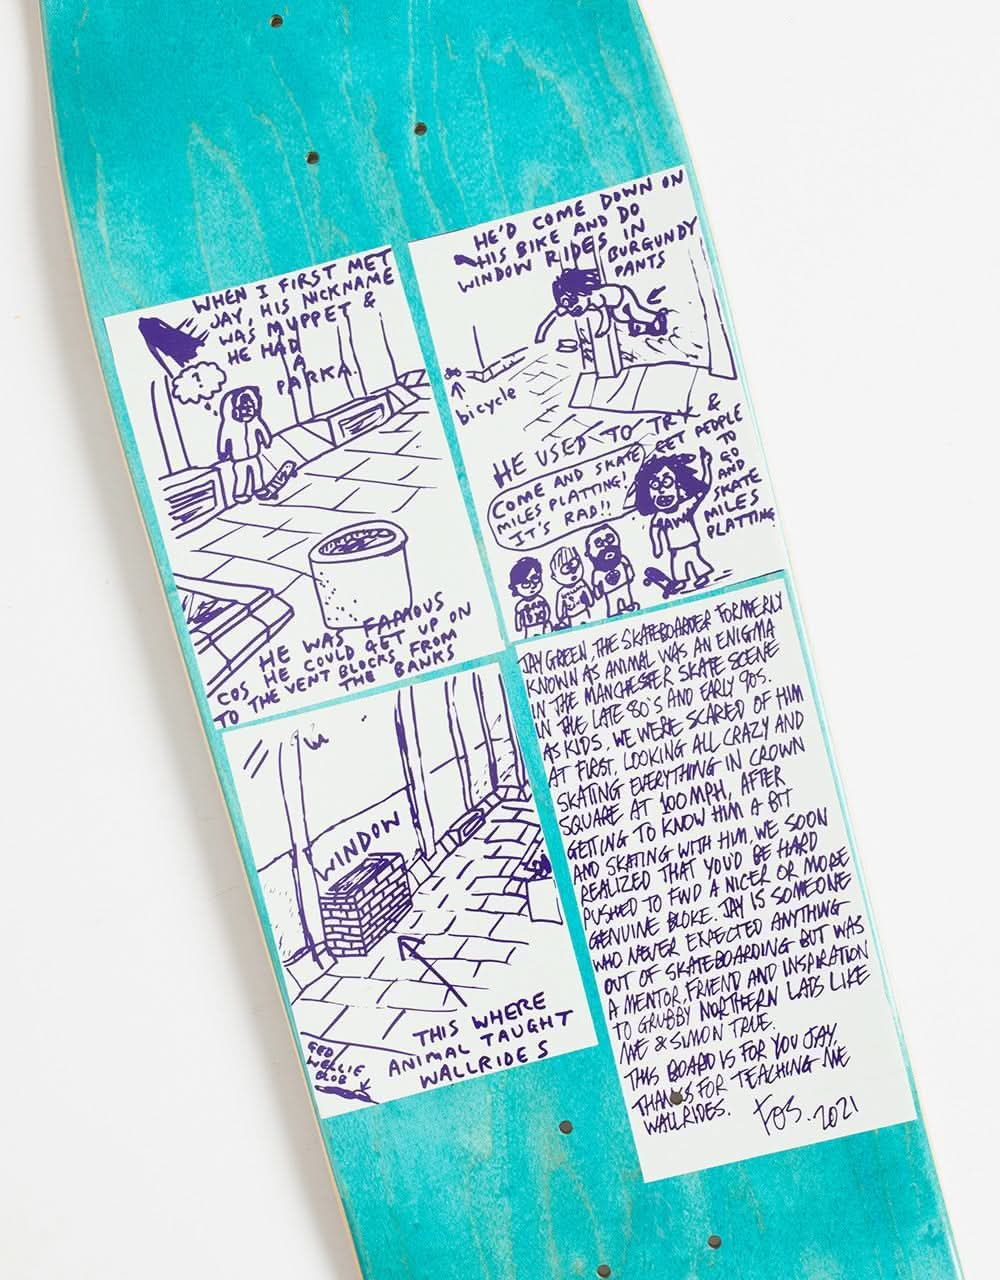 WHEN I FIRST MET
JAY, HIS NICKNAME
WAS MUPPET &
HE HAD
A
PARKA.
?
HE WAS FAMOUS
COS HE COULD GET UP ON
TO THE VENT BLOCKS FROM
THE BANKS
HE'D COME DOWN ON
HIS BIKE AND DO
WINDOW RIDES IN
BURGUNDY
PANTS
bicycle
HE USED TO TRY &
GET PEOPLE
TO
GO
AND
SKATE
MILES
PLATTING
COME AND SKATE
MILES PLATTING!
IT'S RAD!!
WINDOW
THIS WHERE
ANIMAL TAUGHT
WALLRIDES
GED
WELLIE
BLOB
JAY GREEN THE SKATEBOARDER FORMERLY
KNOWN AS ANIMAL WAS AN ENIGMA
IN THE MANCHESTER SKATE SCENE
IN THE LATE 80'S AND EARLY 90S.
AS KIDS, WE WERE SCARED OF HIM
AT FIRST, LOOKING ALL CRAZY AND
SKATING EVERYTHING IN CROWN
SQUARE AT 100MPH, AFTER
GETTING TO KNOW HIM A BIT
AND SKATING WITH HIM, WE SOON
REALIZED THAT YOU'D BE HARD
PUSHED TO FIND A NICER OR MORE
GENUINE BLOKE. JAY IS SOMEONE
WHO NEVER EXPECTED ANYTHING
OUT OF SKATEBOARDING BUT WAS
A MENTOR, FRIEND AND INSPIRATION
TO GRUBBY NORTHERN LADS LIKE
ME & SIMON TRUE.
THIS BOARD IS FOR YOU JAY.
THANKS FOR TEACHING ME
WALLRIDES.
FOS. 2021